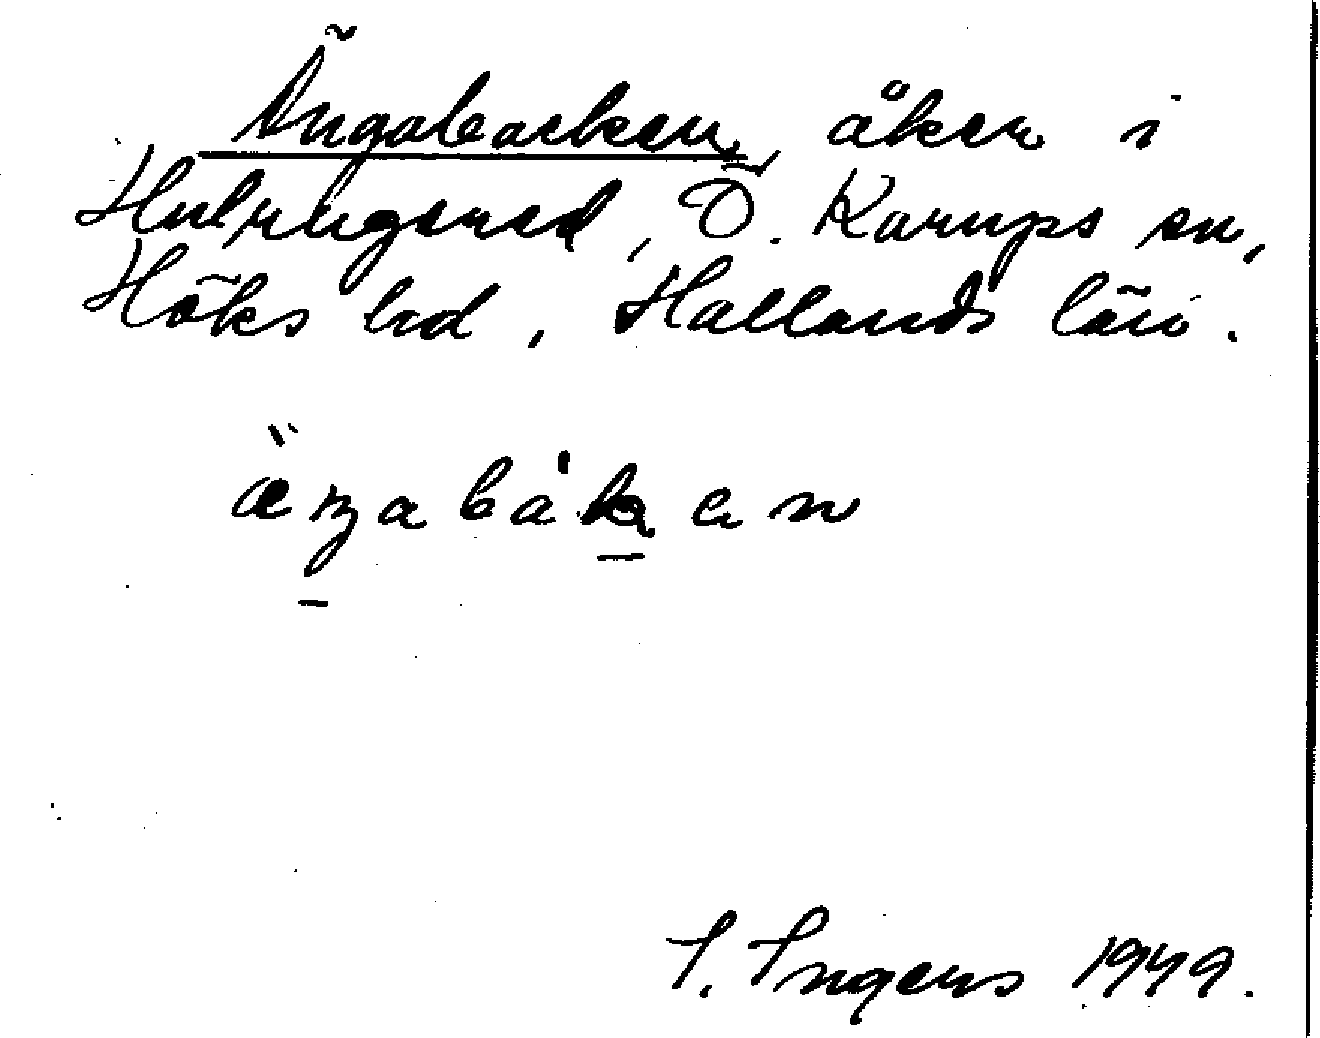 Ängabacken, åker i
Hulrugered, Ö. Karups sn,
Höks hd, Hallands län.
äŋabákan
I. Ingers 1949.